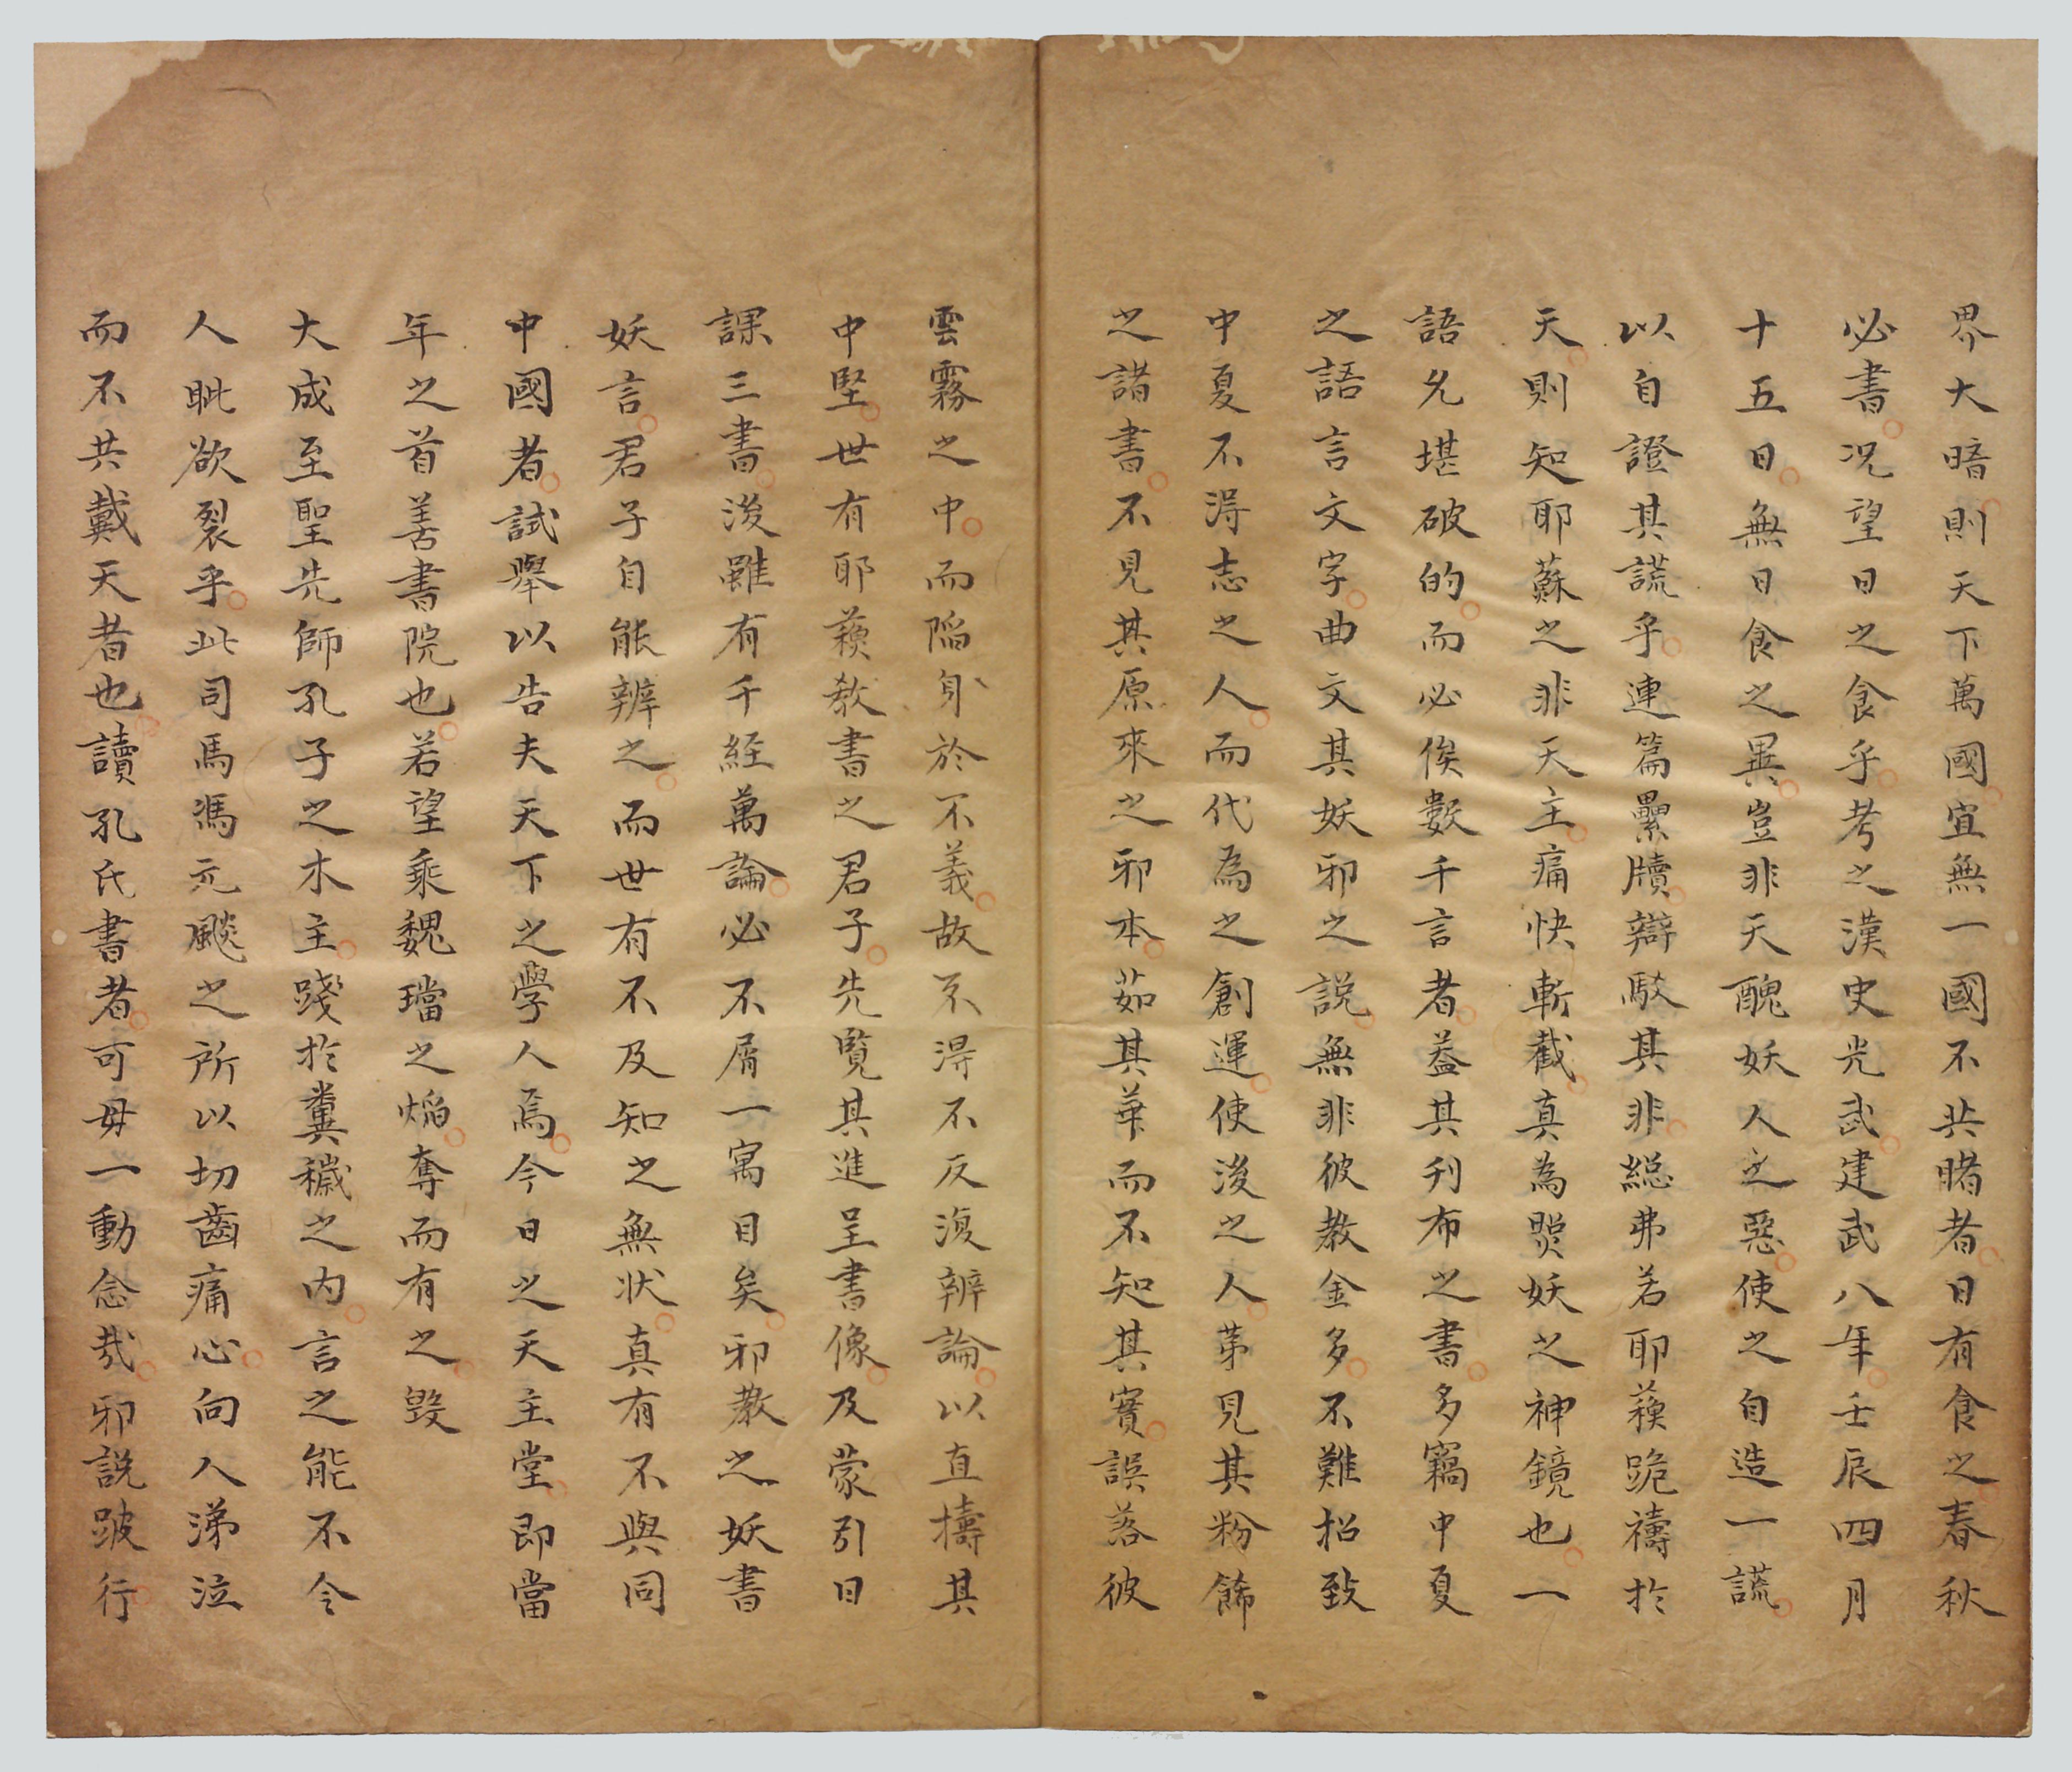 界大暗則天下萬國宜無一國不共睹者日有食之春秋
必書况望日之食乎考之漢史光武建武八年壬辰四月
十五日無日食之異豈非天醜妖人之惡使之自造一謊
以自證其謊乎連篇纍牘辯駁其非総弗若耶蘓跪禱於
天則知耶蘇之非天主痛快斬截真為照妖之神鏡也一
語允堪破的而必俟數千言者葢其刋布之書多竊中夏
之語言文字曲文其妖邪之説無非彼教金多不難招致
中夏不淂志之人而代為之創運使後之人苐見其粉餙
之諸書不見其原來之邪本茹其華而不知其實誤落彼
雲霧之中而陷身於不義故不淂不反復辨論以直擣其
中堅世有耶蘓教書之君子先覧其進呈書像及蒙引日
課三書後雖有千經萬論必不屑一寓目矣邪教之妖書
妖言君子自能辨之而世有不及知之無状真有不與同
中國者試舉以告夫天下之學人焉今日之天主堂即當
年之首善書院也若望乘魏璫之焰奪而有之毀
大成至聖先師孔子之木主踐扵糞穢之内言之能不令
人眦欲裂乎此司馬馮元飈之所以切齒痛心向人涕泣
而不共戴天者也讀孔氏書者可毋一動念㢤邪説跛行